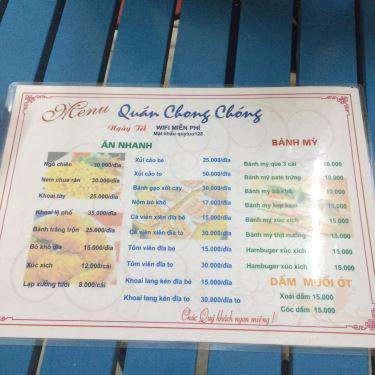 Menu Quán Chong Chóng
Ngày Tết WIFI MIỄN PHÍ
Mật khẩu:quyluu128
ĂN NHANH
Ngô chiên 30.000/đĩa
Nem chua rán 30.000/đĩa
Khoai tây 25.000/đĩa
Khoai lệ phố 35.000/đĩa
Bánh tráng trộn 25.000/đĩa
Bò khô đĩa 15.000/đĩa
Xúc xích 12.000/cái
Lạp xưởng tươi 8.000/cái
Xủi cảo bé 25.000/đĩa
Xủi cảo to 50.000/đĩa
Bánh gạo xốt cay 30.000/đĩa
Nộm bò khô 17.000/đĩa
Cá viên xiên đĩa bé 15.000/đĩa
Cá viên xiên đĩa to 30.000/đĩa
Tôm viên đĩa bé 15.000/đĩa
Tôm viên đĩa to 30.000/đĩa
Khoai lang kén đĩa bé 15.000/đĩa
Khoai lang kén đĩa to 30.000/đĩa to
BÁNH MỲ
Bánh mỳ que 3 cái
Bánh mỳ pate trứng
Bánh mỳ
Bánh mỳ kẹp kem
Bánh mỳ xúc xích 15.000
Bánh mỳ thịt nướng 15.000
Hambuger xúc xích 15.000
Hambuger xúc xích 15.000
DẦM MUỐI ỚT
Xoài dầm 15.000
Cóc dầm 15.000
Chúc Quý khách ngon miệng !